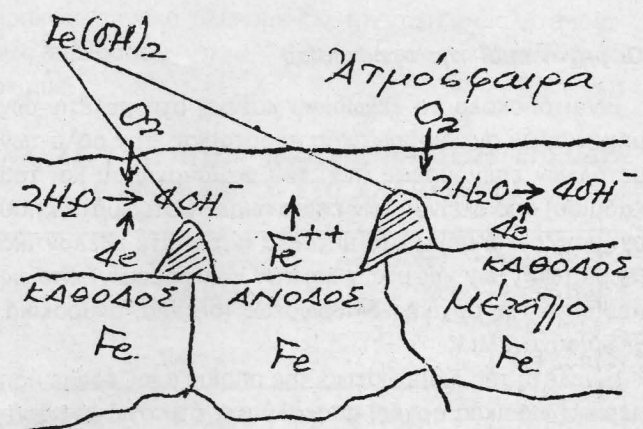 Fe(OH)2
Ἀτμόσφαιρα
O2 O2
2H2O → 4OH⁻ Fe++ 2H2O → 4OH⁻
4e 4e
ΚΑΘΟΔΟΣ ΑΝΟΔΟΣ ΚΑΘΟΔΟΣ
Fe Fe Fe